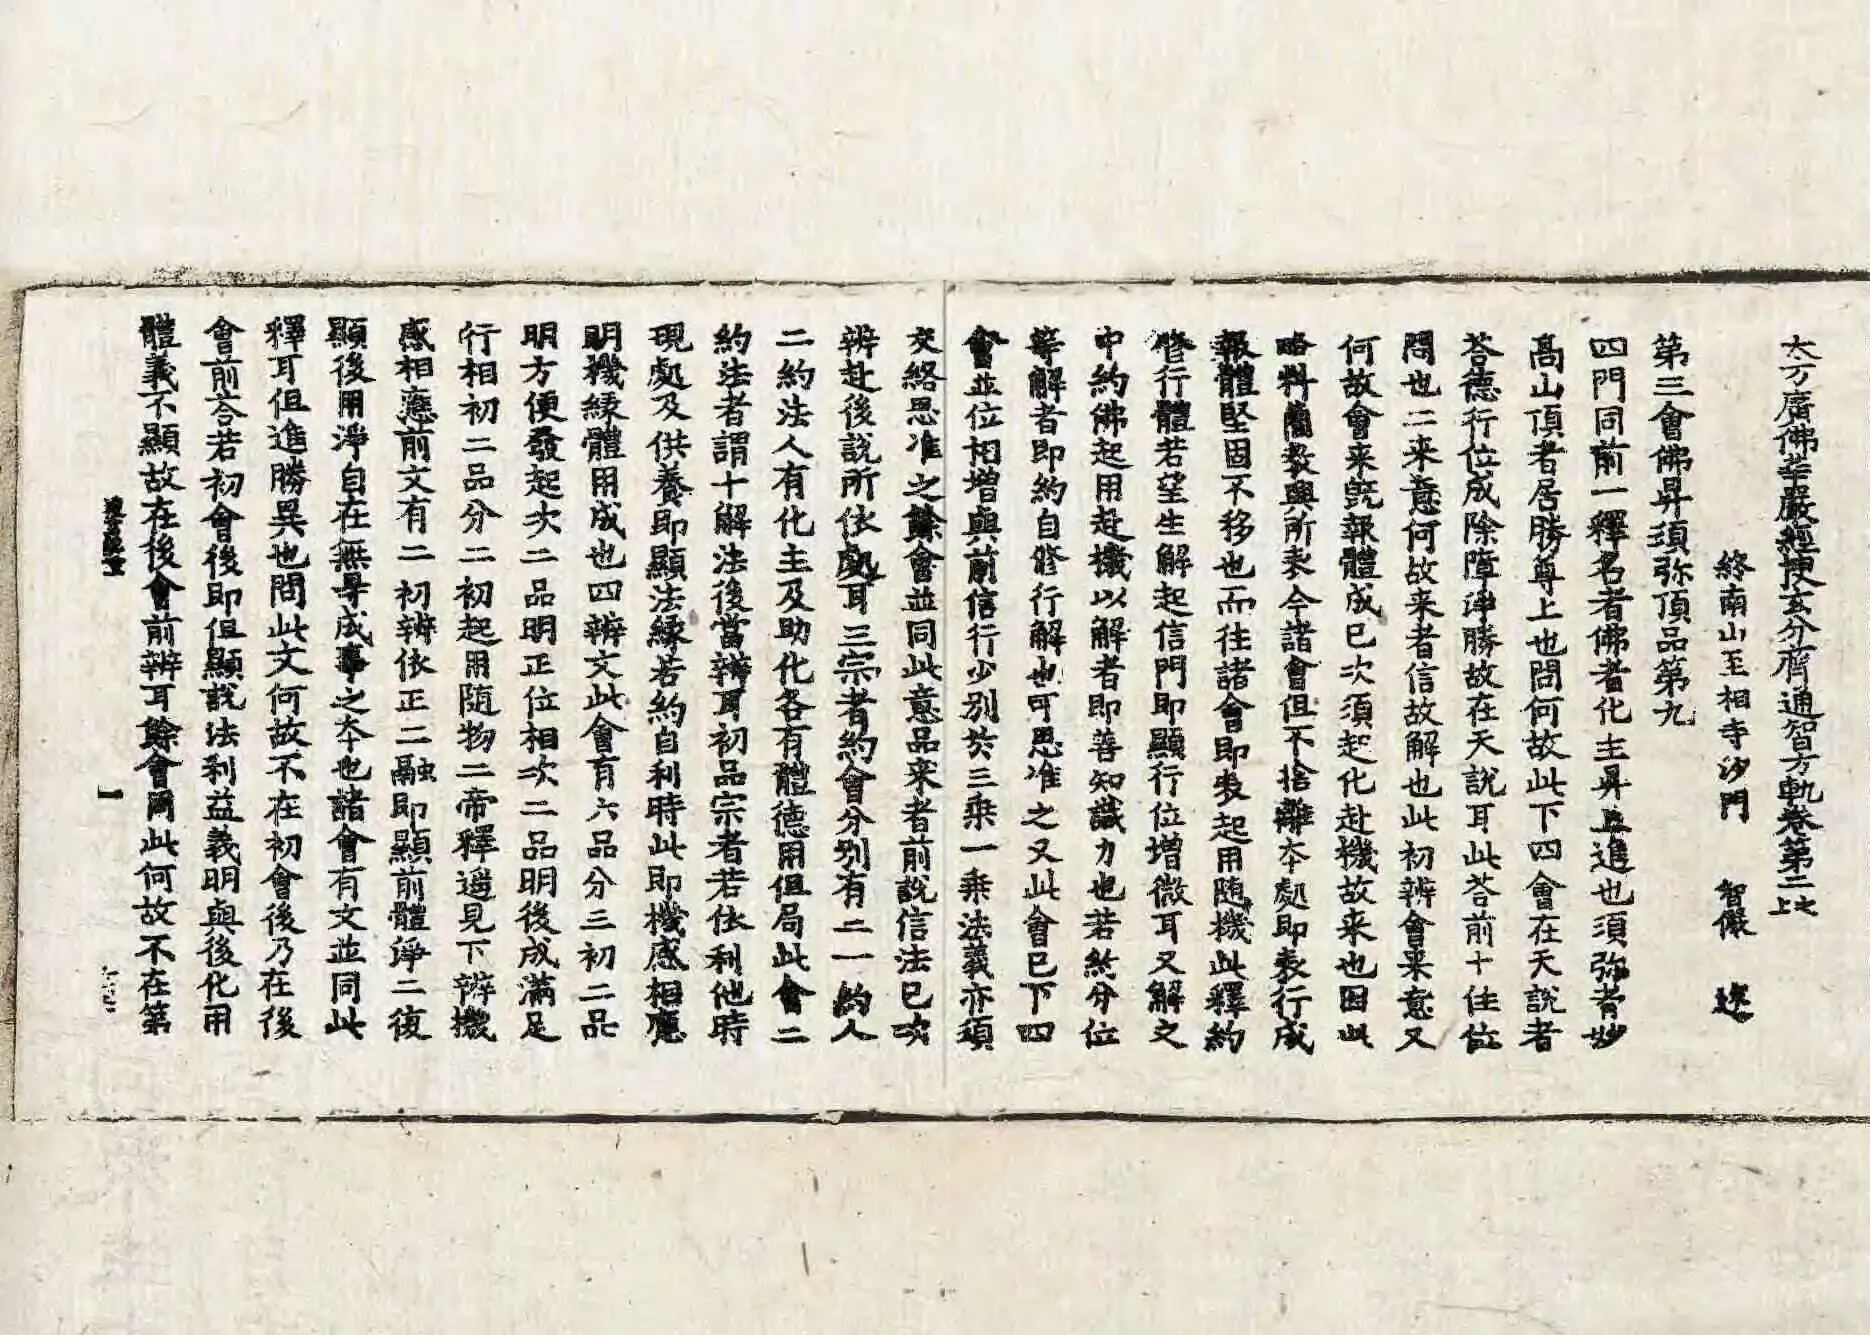 大方廣佛華嚴經搜玄分齊通智方軌卷第二之上
終南山至相寺沙門 智儼 述
第三會佛昇須弥頂品第九
四門同前一釋名者佛者化主昇上進也須弥者妙
高山頂者居勝尊上也問何故此下四會在天說者
荅德行位成除障淨勝故在天說耳此荅前十住位
問也二来意何故来者信故解也此初辨會来意又
何故會来旣報體成已次須起化赴機故来也因此
略料簡教興所表今諸會但不捨離本處即表行成
報體堅固不移也而往諸會即表起用随機此釋約
修行體若望生解起信門即顯行位增微耳又解文
中約佛起用赴機以解者即善知識力也若約分位
等解者即約自修行解也可思准之又此會已下四
會並位相增與前信行少別於三乘一乘法義亦須
交絡思准之餘會並同此意品来者前說信法已次
辨赴後說所依處耳三宗者約會分別有二一約人
二約法人有化主及助化各有體德用但局此會二
約法者謂十解法後當辨耳初品宗者若依利他時
現處及供養即顯法緣若約自利時此即機感相應
明機緣體用成也四辨文此會有六品分三初二品
明方便發起次二品明正位相次二品明後成滿足
行相初二品分二初起用随物二帝釋遥見下辨機
感相應前文有二初辨依正二融即顯前體淨二復
顯後用淨自在無㝵成事之本也諸會有文並同此
釋耳但進勝異也問此文何故不在初會後乃在後
會前荅若初會後即但顯說法利益義明與後化用
體義不顯故在後會前辨耳餘會同此何故不在第
一